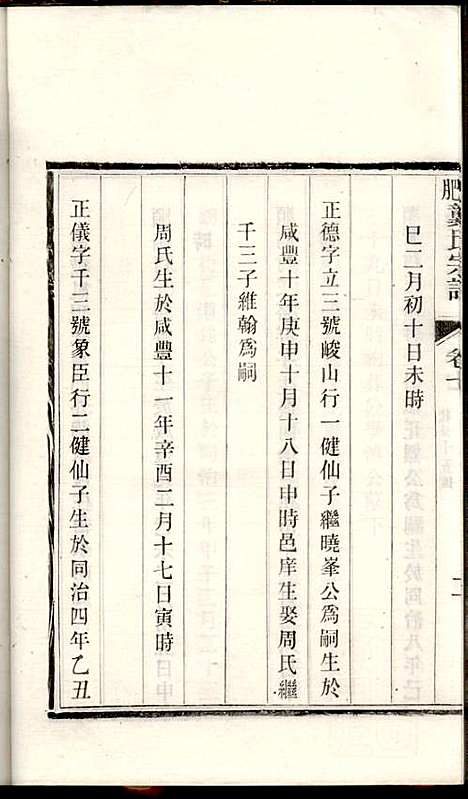 肥龔氏宗譜
卷十
二
巳二月初十日未時
正德字立三號峻山行一健仙子繼曉峯公為嗣生於
咸豐十年庚申十月十八日申時邑庠生娶周氏繼
千三子維翰為嗣
周氏生於咸豐十一年辛酉二月十七日寅時
正儀字千三號象臣行二健仙子生於同治四年乙丑